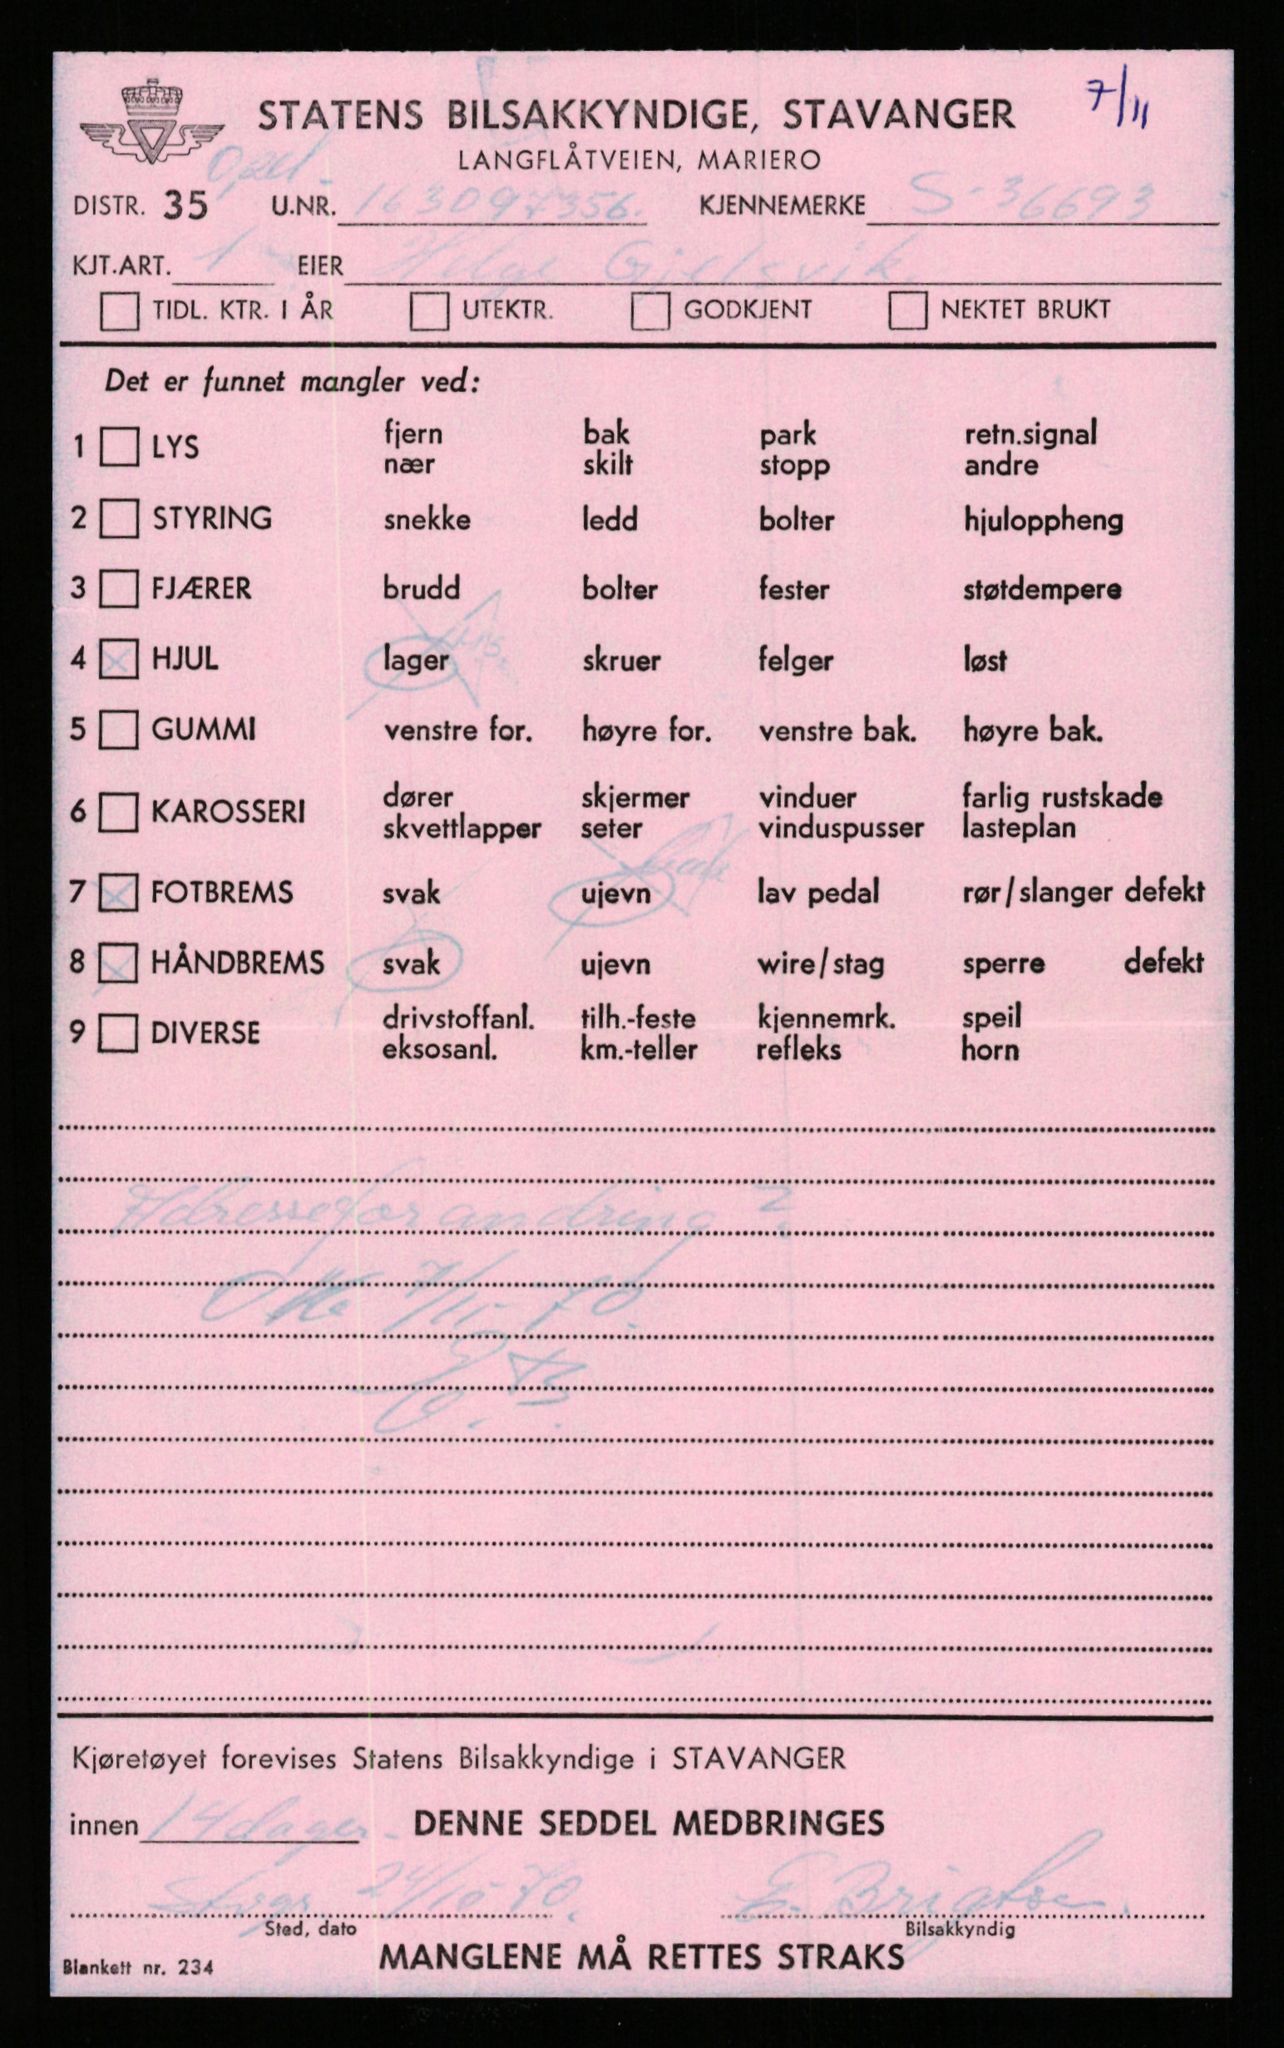 7/11
STATENS BILSAKKYNDIGE, STAVANGER
LANGFLÅTVEIEN, MARIERO
Opel.
DISTR. 35 U.NR. 163097356. KJENNEMERKE S-36693
KJT.ART. 1 EIER Helge Gjelsvik
TIDL. KTR. I ÅR UTEKTR. GODKJENT NEKTET BRUKT
Det er funnet mangler ved:
1 LYS fjern bak park retn.signal
nær skilt stopp andre
2 STYRING snekke ledd bolter hjuloppheng
3 FJÆRER brudd bolter fester støtdempere
4 HJUL lager skruer felger løst
5 GUMMI venstre for. høyre for. venstre bak. høyre bak.
6 KAROSSERI dører skjermer vinduer farlig rustskade
skvettlapper seter vinduspusser lasteplan
bak
7 FOTBREMS svak ujevn lav pedal rør/slanger defekt
8 HÅNDBREMS svak ujevn wire/stag sperre defekt
9 DIVERSE drivstoffanl. tilh.-feste kjennemrk. speil
eksosanl. km.-teller refleks horn
Adresseforandring ?
7/11-70.
Kjøretøyet forevises Statens Bilsakkyndige i STAVANGER
innen 14 dager. DENNE SEDDEL MEDBRINGES
Svgr 24/10-70. E. Brigtsø.
Sted, dato Bilsakkyndig
Blankett nr. 234 MANGLENE MÅ RETTES STRAKS